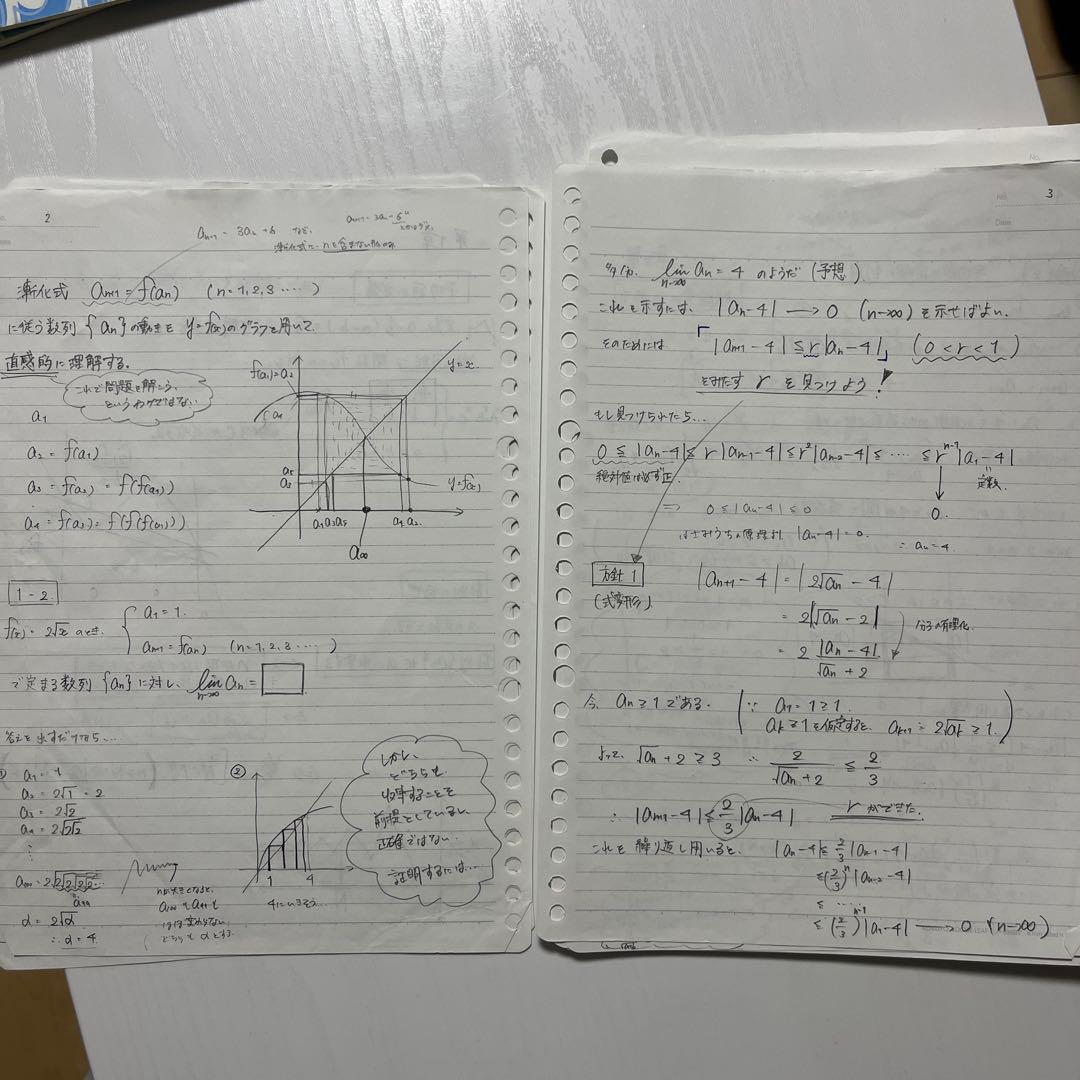 2
a_{n+1} = 3a_n + 6 など、
漸化式に n を含まないもの
漸化式 a_{n+1} = f(a_n) (n=1,2,3‥‥)
に従う数列 {a_n} の動きを y=f(x)のグラフを用いて、
直感的に理解する。
これで問題を解こう、
というわけではない
a_1
a_2 = f(a_1)
a_3 = f(a_2) = f(f(a_1))
a_4 = f(a_3) = f(f(f(a_1)))
y=x
f(a_1)=a_2
a_4
a_5
a_3
y=f(x)
a_1 a_3 a_5 a_4 a_2
a_∞
1-2
f(x) = 2√x のとき、
a_1 = 1.
a_{n+1} = f(a_n) (n=1,2,3‥‥)
で定まる数列 {a_n} に対し、 lim_{n→∞} a_n = □
答えを出すだけなら…
①
a_1 = 1
a_2 = 2√1 = 2
a_3 = 2√2
a_4 = 2√2√2
⋮
a_{100} = 2√2√2√2√2…
a_{99}
α = 2√α
∴ α = 4.
nが大きくなると、
a_{100} も a_{99} も
ほぼ変わらない、
どちらも αとする。
②
1 4
4にいきそう…
しかし、
どちらも
収束することを
前提としているし、
正確ではない
証明するには…
No. 3
Date
lim_{n→∞} a_n = 4 のようだ (予想)
これを示すには、 |a_n-4| → 0 (n→∞) を示せばよい。
そのためには 「|a_{n+1}-4| ≦ r|a_n-4|」 (0<r<1)
をみたす r を見つけよう!
もし見つけられたら…
0 ≦ |a_n-4| ≦ r|a_{n-1}-4| ≦ r^2|a_{n-2}-4| ≦ ‥‥ ≦ r^{n-1}|a_1-4|
絶対値は必ず正. 0. 定数.
⇒ 0 ≦ |a_n-4| ≦ 0
はさみうちの原理より |a_n-4| = 0.
∴ a_n = 4.
方針1
(式変形)
|a_{n+1} - 4| = |2√a_n - 4|
= 2|√a_n - 2|
= 2 |a_n - 4| / (√a_n + 2)
分子の有理化.
今、 a_n ≧ 1 である. (∵ a_1 = 1 ≧ 1.
a_k ≧ 1 を仮定すると、 a_{k+1} = 2√a_k ≧ 1.)
よって、 √a_n + 2 ≧ 3 ∴ 2/(√a_n + 2) ≦ 2/3
∴ |a_{n+1}-4| ≦ 2/3 |a_n-4| rができた.
これを繰り返し用いると、 |a_n-4| ≦ 2/3 |a_{n-1}-4|
≦ (2/3)^n |a_{n-2}-4|
≦ ‥‥
≦ (2/3)^{n-1} |a_1-4| → 0 (n→∞)